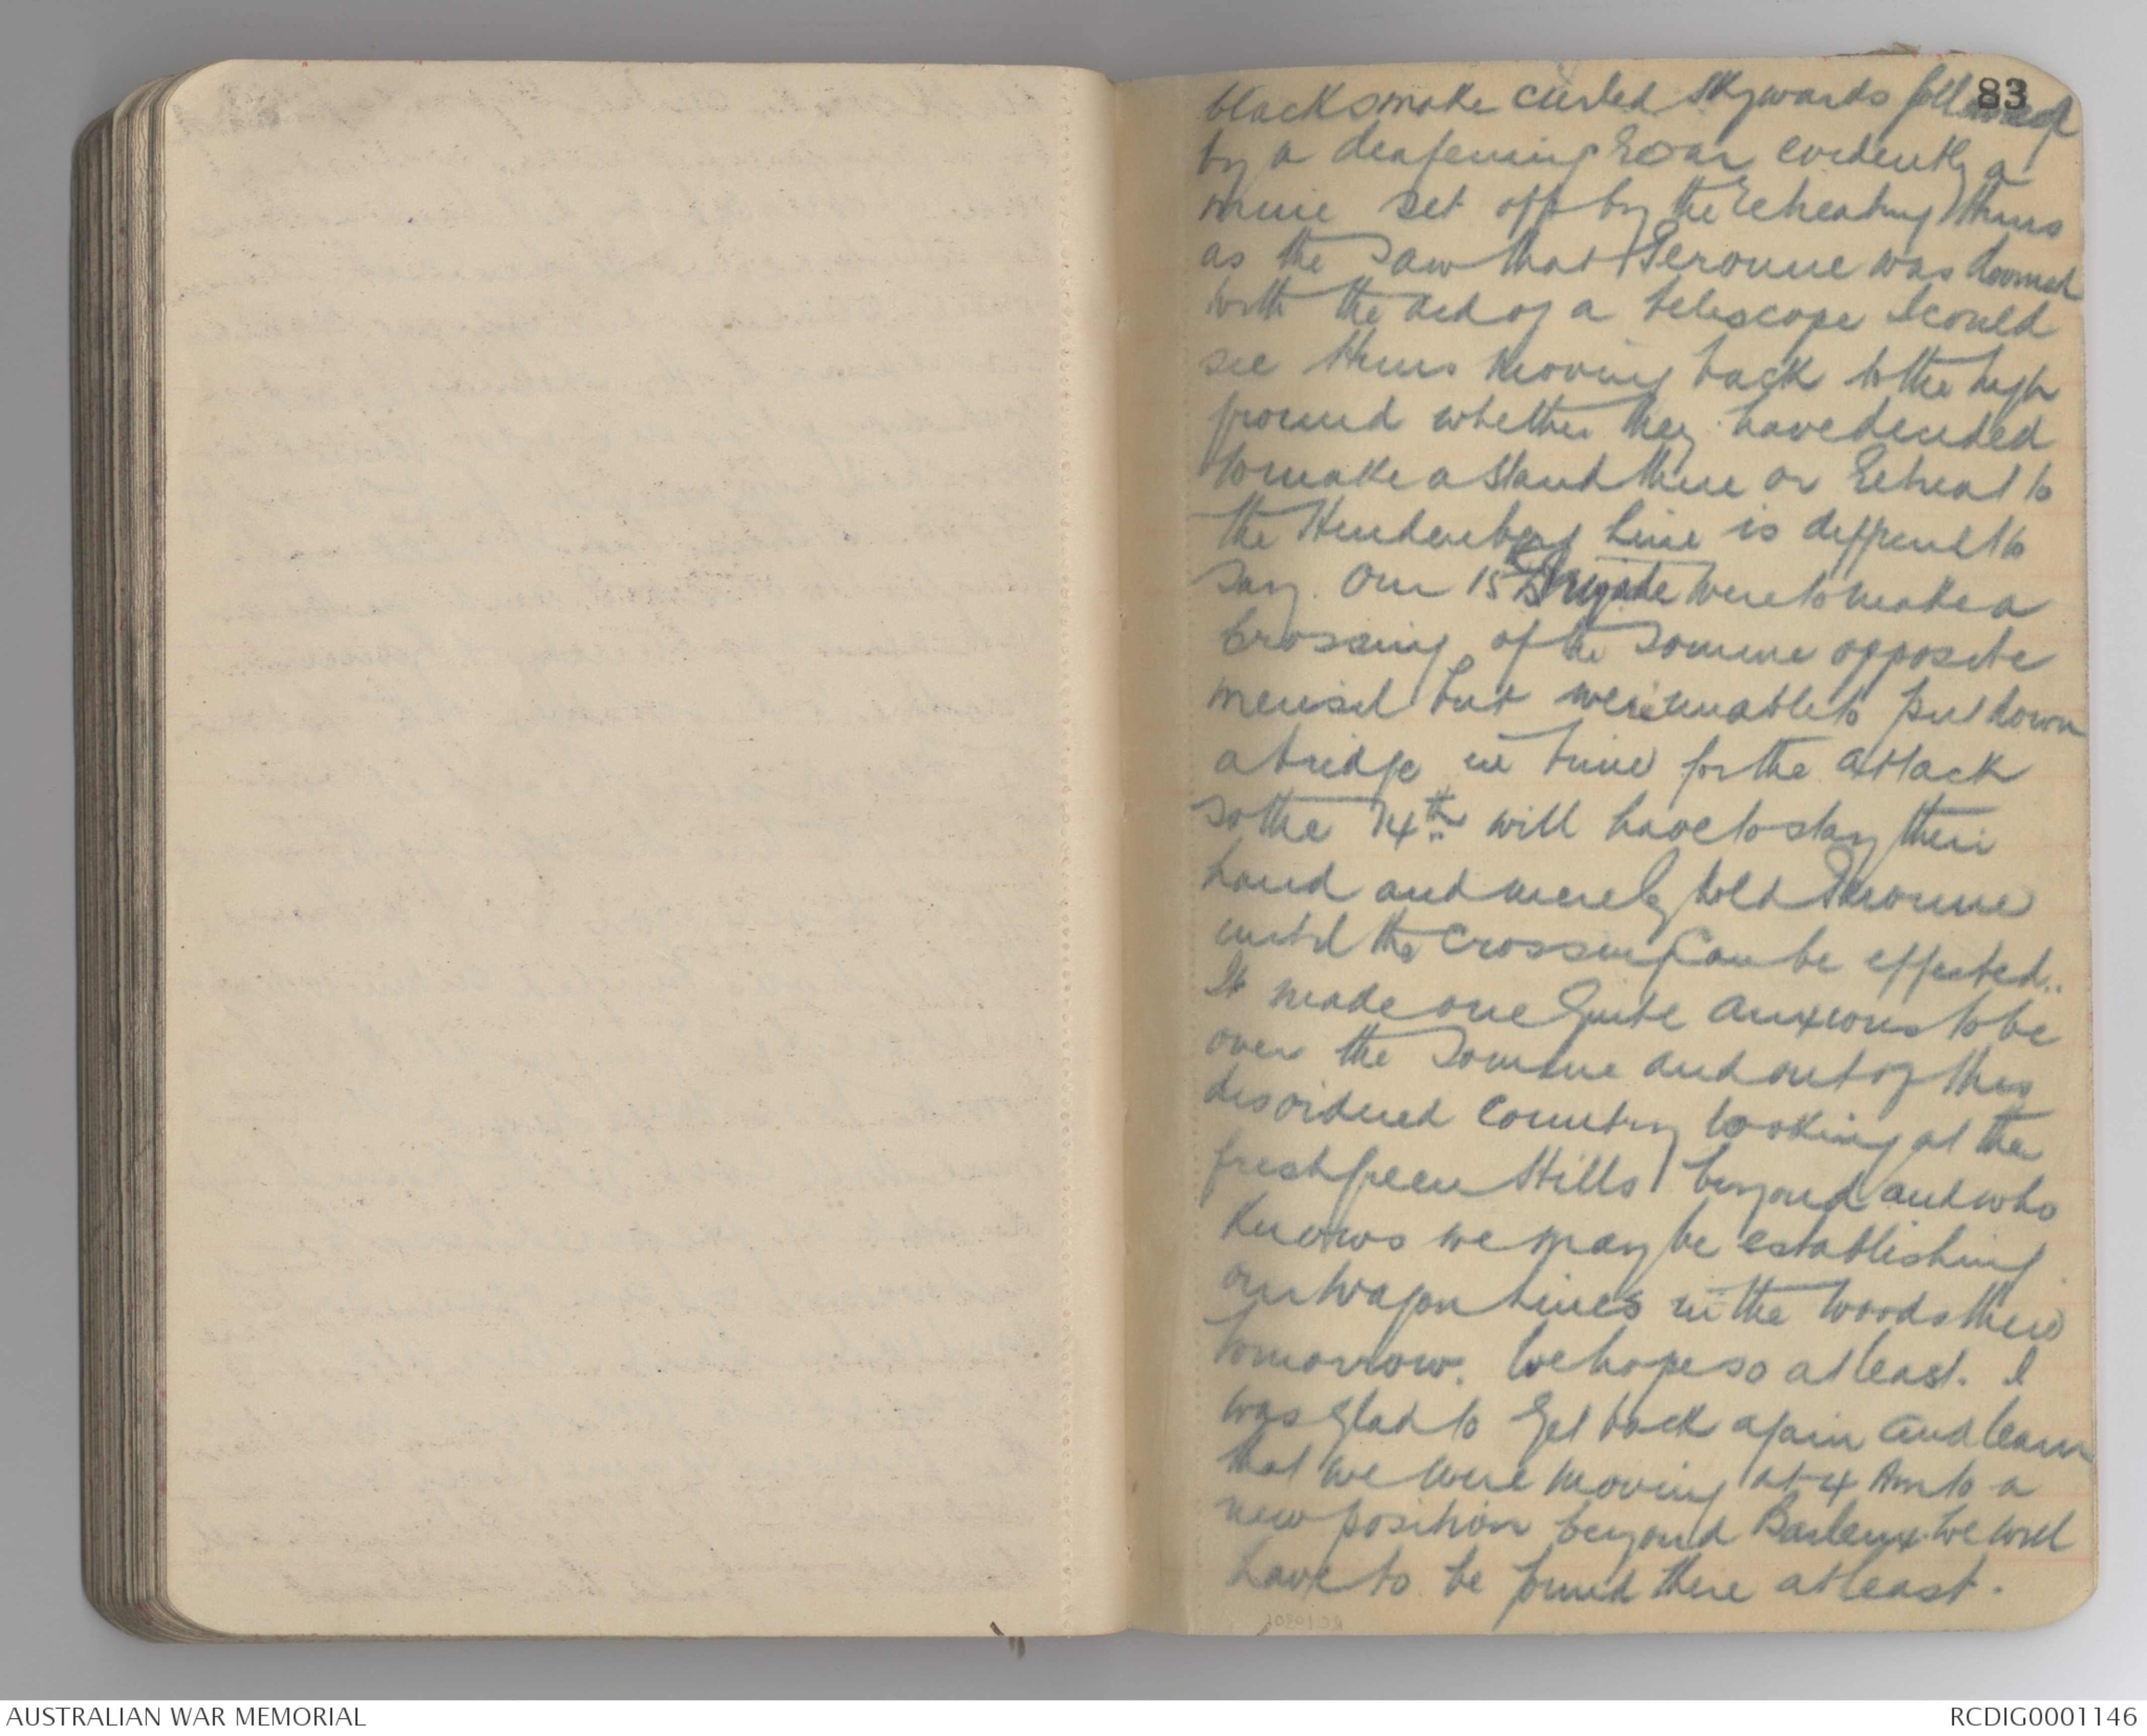 83
black smoke curled skywards followed
by a deafening roar evidently a
mine set off by the retreating Huns
as the saw that Peronne was doomed
With the aid of a telescope I could
see Huns moving back to the high
ground whether they have decided
to make a stand there or retreat to
the Hindenberg Line is difficult to
say. Our 15 Brigade were to make a
crossing of the Somme opposite
but were unable to put down
a bridge in time for the attack
so the 14th will have to stay their
hand and merely hold Peronne
until the crossing can be effected..
It made one quite anxious to be
over the Somme and out of this
disordered country looking at the
fresh green Hills beyond and who
knows we may be establishing
our wagon lines in the woods there
tomorrow. We hope so at least. I
was glad to get back again and learn
that we were moving at 4 Am to a
new position beyond Barleux. We will
have to be found there at least.
AUSTRALIAN WAR MEMORIAL
RCDIG0001146